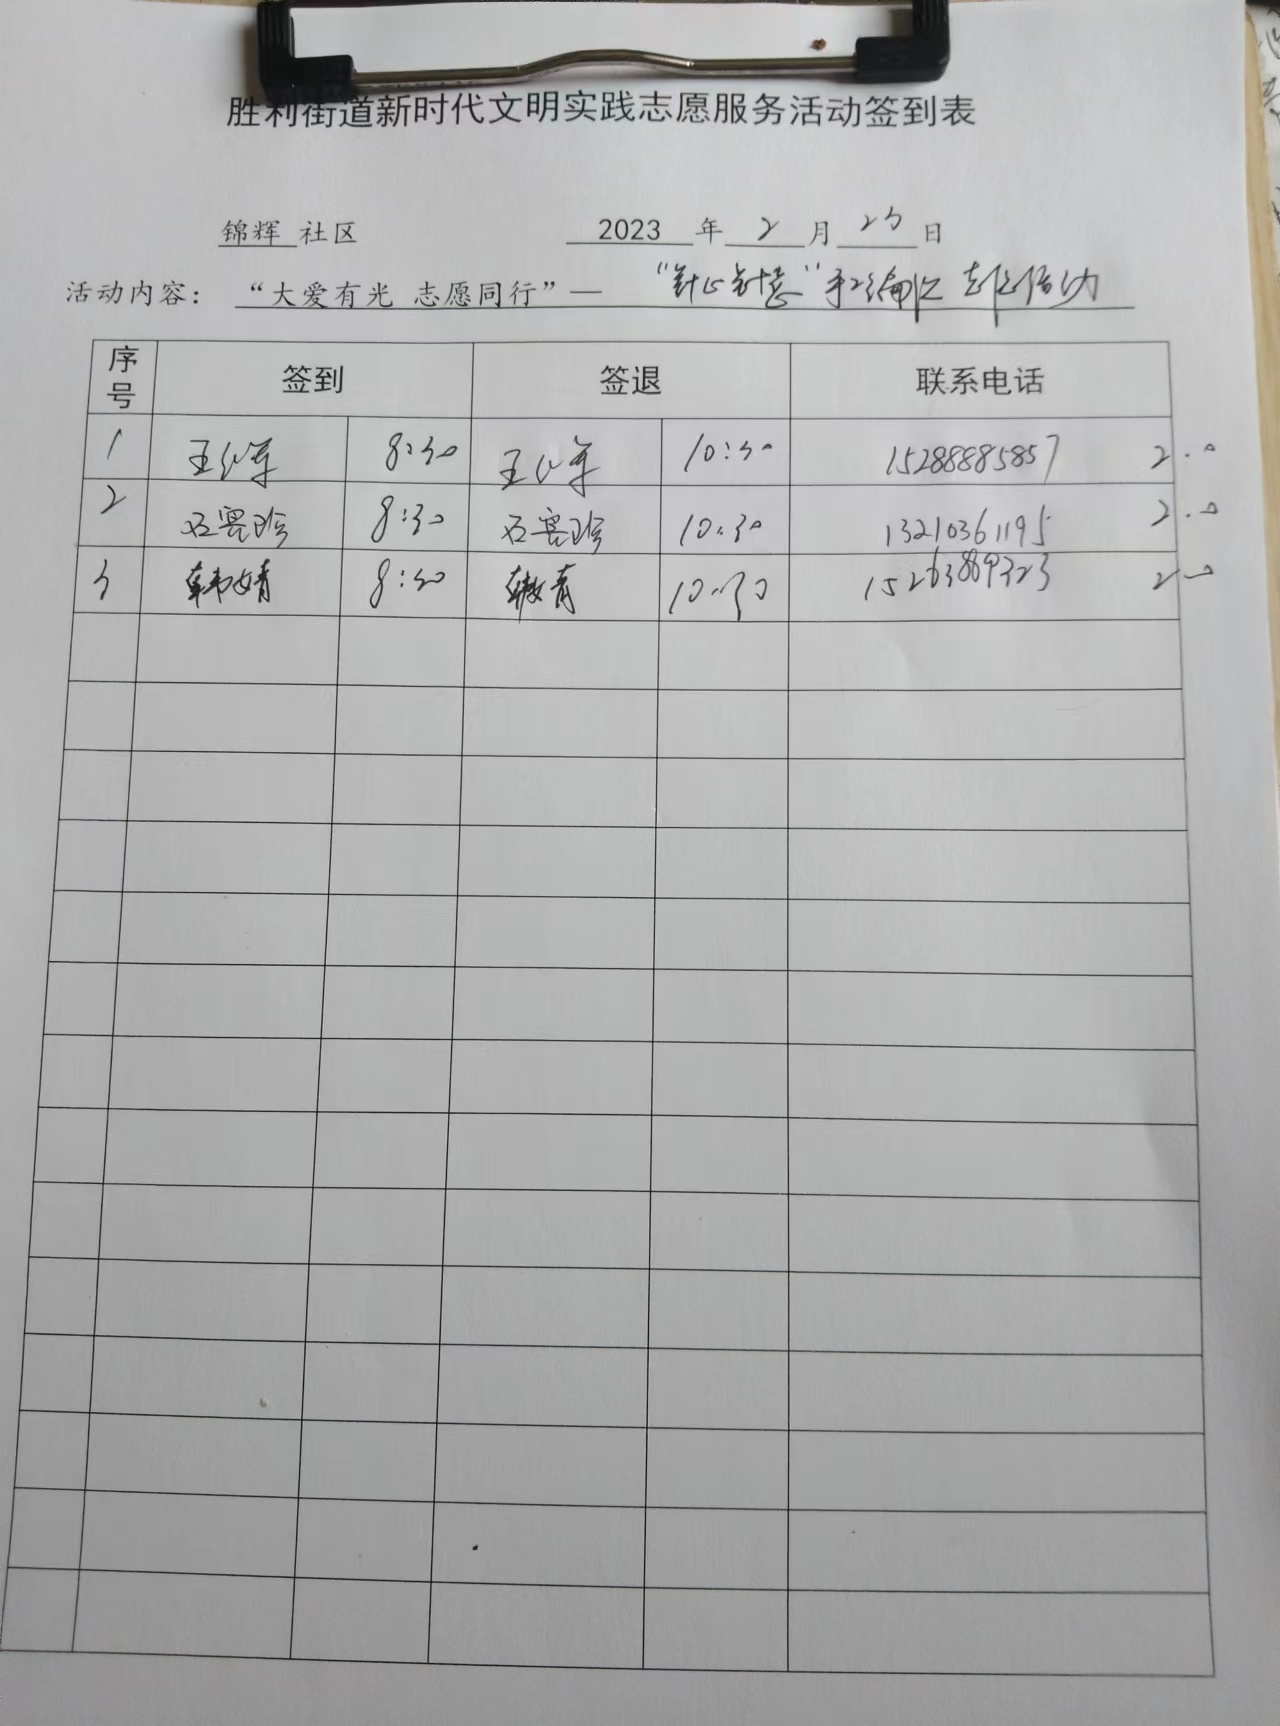 胜利街道新时代文明实践志愿服务活动签到表
锦辉 社区 2023 年 2 月 23 日
活动内容： “大爱有光 志愿同行”— “针心针意”手工编织 志愿活动
序号 签到 签退 联系电话
1 王 军 8:30 王 军 10:30 15288885857 2.0
2 石 珍 8:30 石 珍 10:30 13210361195 2.0
3 韩婧 8:30 韩婧 10:30 15263889323 2.0